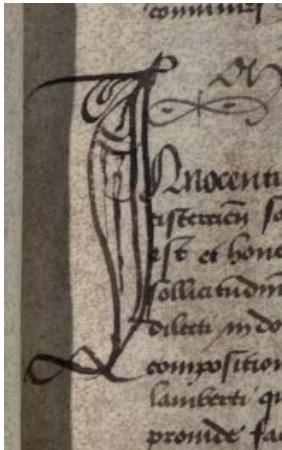 communes
Innocenti
cistercien̄ so
est et hone
sollicitudin̄
dilecti in do
composition
lamberti qu
provide fac